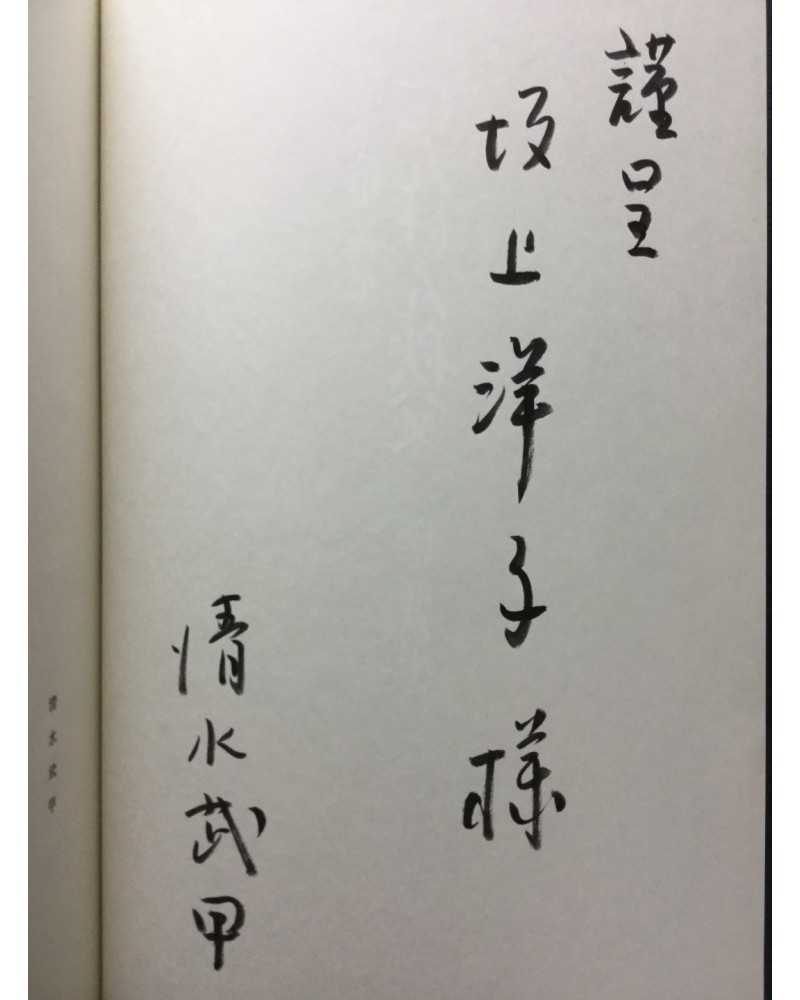 謹呈
坂上洋子様
清水武甲
清水武甲